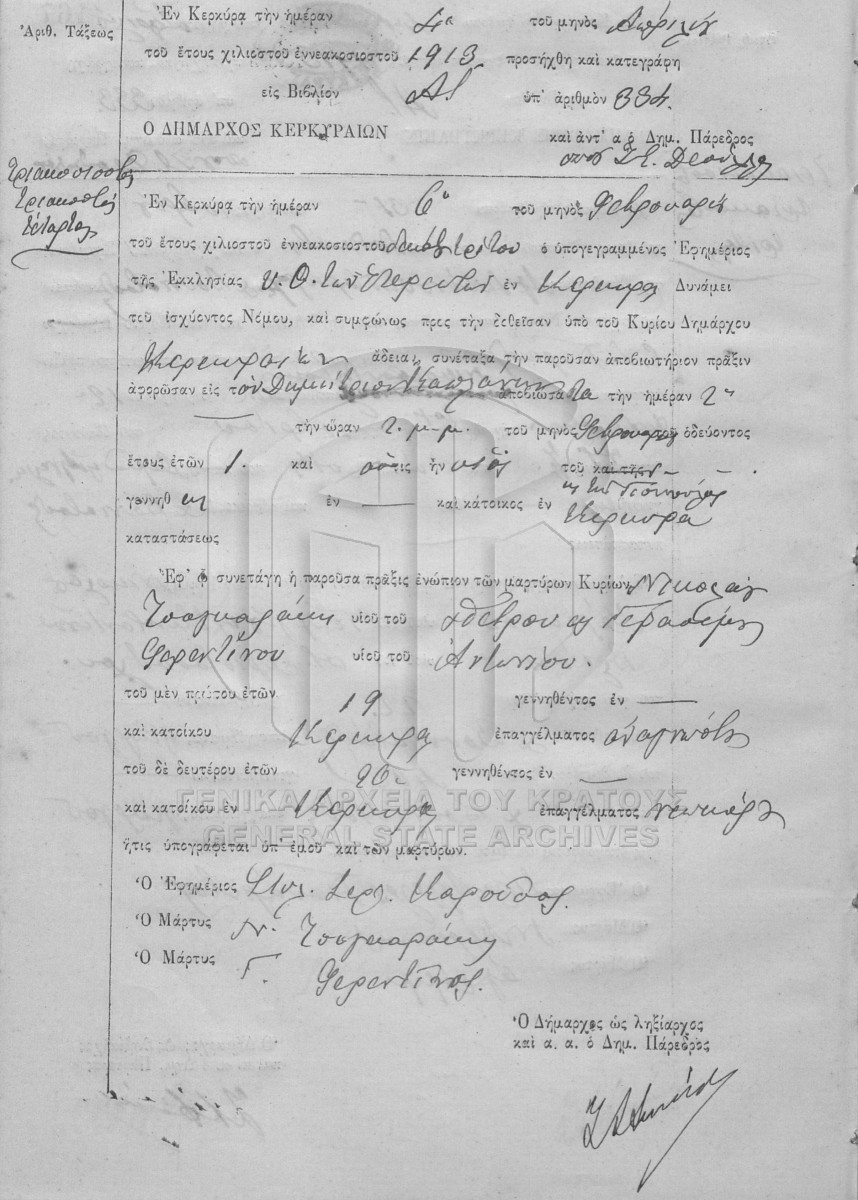 Ἀριθ. Τάξεως
Ἐν Κερκύρᾳ τὴν ἡμέραν 4η τοῦ μηνὸς Ἀπριλίου
τοῦ ἔτους χιλιοστοῦ ἐννεακοσιοστοῦ 1913 προσήχθη καὶ κατεγράφη
εἰς Βιβλίον ὑπ' ἀριθμὸν 334.
Ο ΔΗΜΑΡΧΟΣ ΚΕΡΚΥΡΑΙΩΝ καὶ ἀντ' α ὁ Δημ. Πάρεδρος
Τριακοσιοστὸς
τριακοστὸς
τέταρτος
Ἐν Κερκύρᾳ τὴν ἡμέραν 6η τοῦ μηνὸς Φεβρουαρίου
τοῦ ἔτους χιλιοστοῦ ἐννεακοσιοστοῦ δεκάτου τρίτου ὁ ὑπογεγραμμένος Ἐφημέριος
τῆς Ἐκκλησίας Υ. Θ. τῶν ἐν Κερκύρᾳ Δυνάμει
τοῦ ἰσχύοντος Νόμου, καὶ συμφώνως προς τὴν δεθεῖσαν ὑπὸ τοῦ Κυρίου Δημάρχου
Κερκυραίων ἄδειαν, συνέταξα τὴν παροῦσαν ἀποβιωτήριον πρᾶξιν
ἀφορῶσαν εἰς τὸν Δημήτριον ἀποβιώσαντα τὴν ἡμέραν 2αν
τὴν ὥραν 2. μ.μ. τοῦ μηνὸς Φεβρουαρίου τοῦ ὁδεύοντος
ἔτους ἐτῶν 1. καὶ ὅστις ἦν υἱὸς τοῦ καὶ τῆς
γεννηθ ἐν — καὶ κάτοικος ἐν Κερκύρᾳ
καταστάσεως
Ἐφ' ᾧ συνετάγη ἡ παροῦσα πρᾶξις ἐνώπιον τῶν μαρτύρων Κυρίων Νικολάου
Τσαγκαράκη υἱοῦ τοῦ Σπύρου καὶ Γερασίμου
Φερεντίνου υἱοῦ τοῦ Ἀντωνίου.
τοῦ μὲν πρώτου ἐτῶν 19 γεννηθέντος ἐν —
καὶ κατοίκου Κερκύρᾳ ἐπαγγέλματος ἀναγνώστου
τοῦ δὲ δευτέρου ἐτῶν γεννηθέντος ἐν —
καὶ κατοίκου ἐν Κερκύρᾳ ἐπαγγέλματος
ΓΕΝΙΚΑ ΑΡΧΕΙΑ ΤΟΥ ΚΡΑΤΟΥΣ
GENERAL STATE ARCHIVES
ἥτις ὑπογράφεται ὑπ' ἐμοῦ καὶ τῶν μαρτύρων.
Ὁ Ἐφημέριος
Ὁ Μάρτυς Ν. Τσαγκαράκης
Ὁ Μάρτυς Γ. Φερεντῖνος.
Ὁ Δήμαρχος ὡς ληξίαρχος
καὶ α. α. ὁ Δημ. Πάρεδρὸς